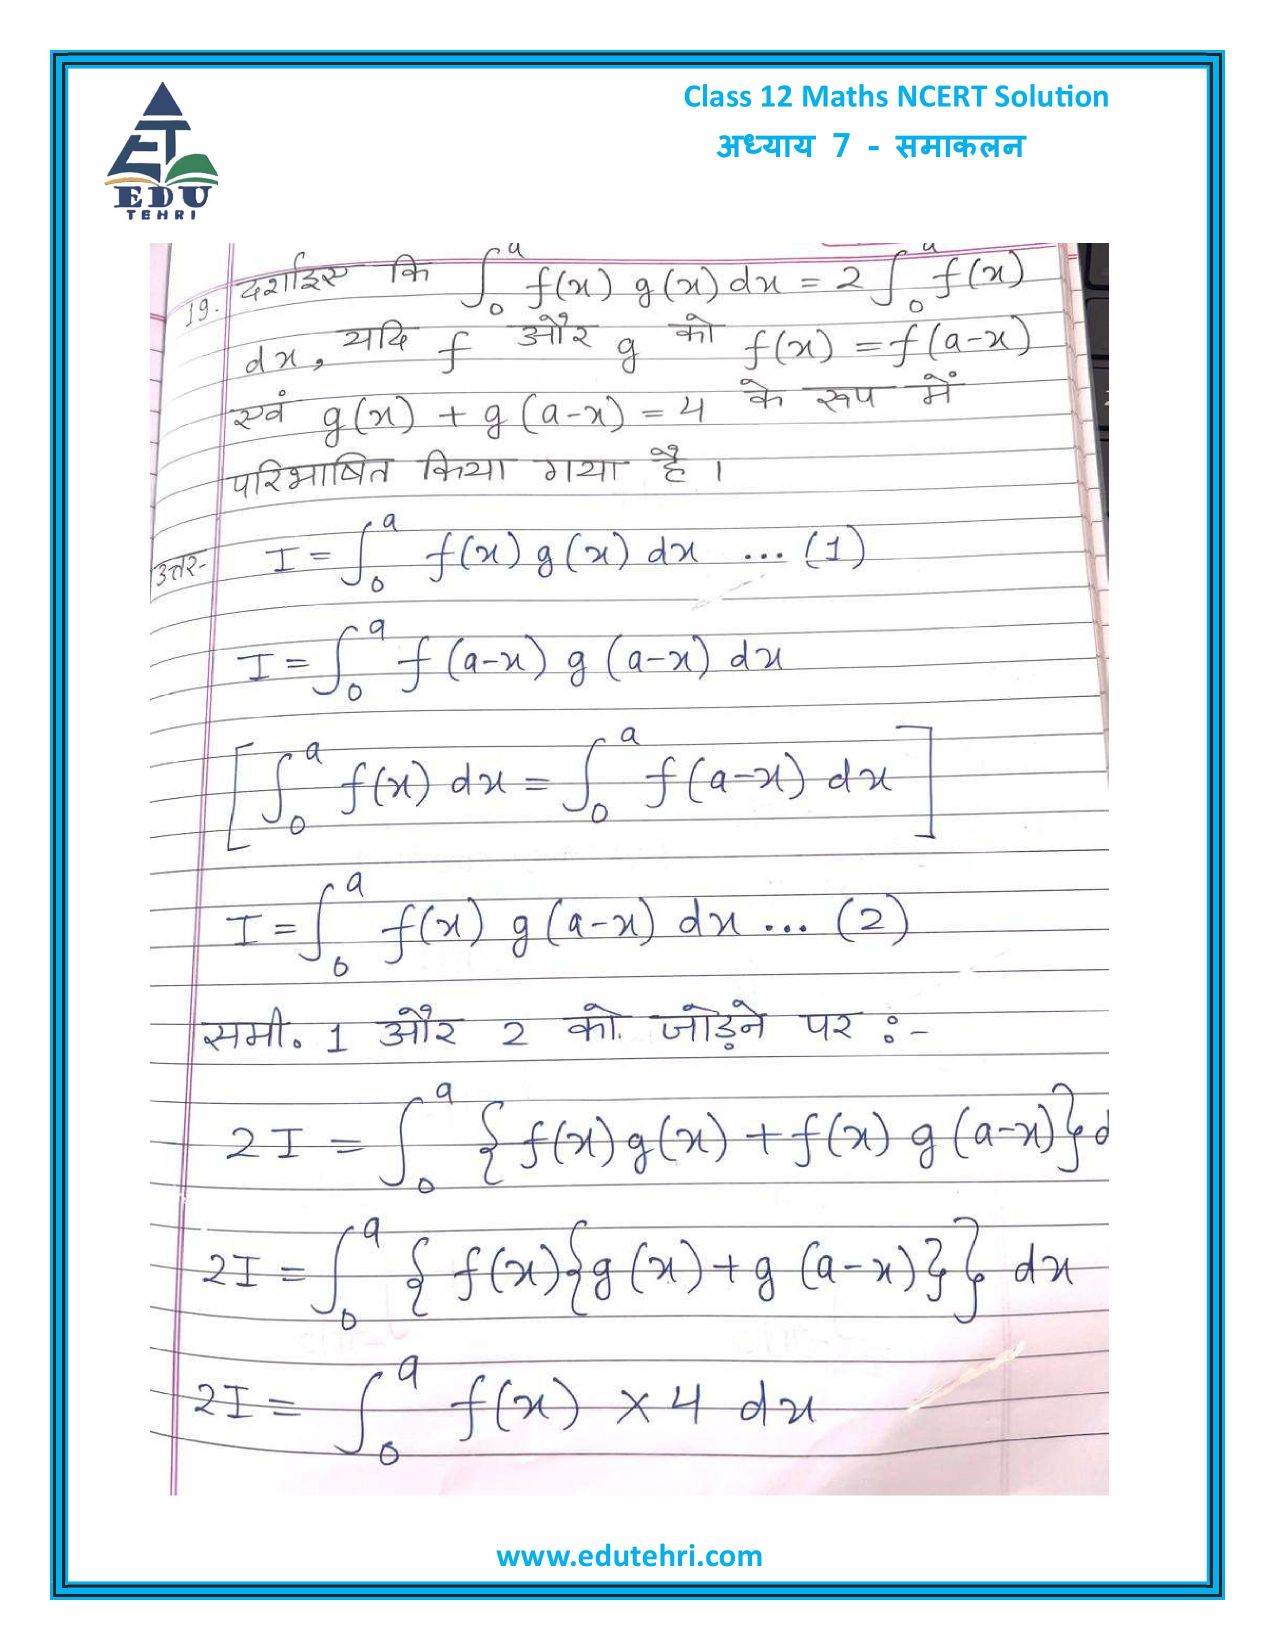 Class 12 Maths NCERT Solution
अध्याय 7 - समाकलन
EDU
TEHRI
19. दर्शाइए कि ∫₀ᵃ f(x) g(x) dx = 2 ∫₀ᵃ f(x)
dx, यदि f और g को f(x) = f(a-x)
एवं g(x) + g(a-x) = 4 के रूप में
परिभाषित किया गया है ।
उत्तर- I = ∫₀ᵃ f(x) g(x) dx ... (1)
I = ∫₀ᵃ f(a-x) g(a-x) dx
[∫₀ᵃ f(x) dx = ∫₀ᵃ f(a-x) dx]
I = ∫₀ᵃ f(x) g(a-x) dx ... (2)
समी. 1 और 2 को जोड़ने पर :-
2I = ∫₀ᵃ {f(x) g(x) + f(x) g(a-x)} d
2I = ∫₀ᵃ {f(x){g(x) + g(a-x)}} dx
2I = ∫₀ᵃ f(x) × 4 dx
www.edutehri.com